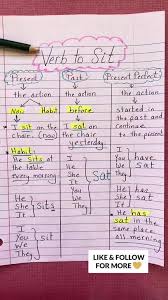 Verb to Sit
Present
the action
Now Habit
I sit on
the chair. (now)
Habit:
He sits at
the table
every morning
He
She } Sits
It
I
You } sit
We
They
Past
the action
before
I sat on
the chair
yesterday
I
He
She
It } Sat
You
We
They
Present Perfect
the action
started in
the past and
continue
to the present
I
You } have
We sat
They
He
She } has
It sat
He has
sat in the
same place
all morning
LIKE & FOLLOW
FOR MORE💛